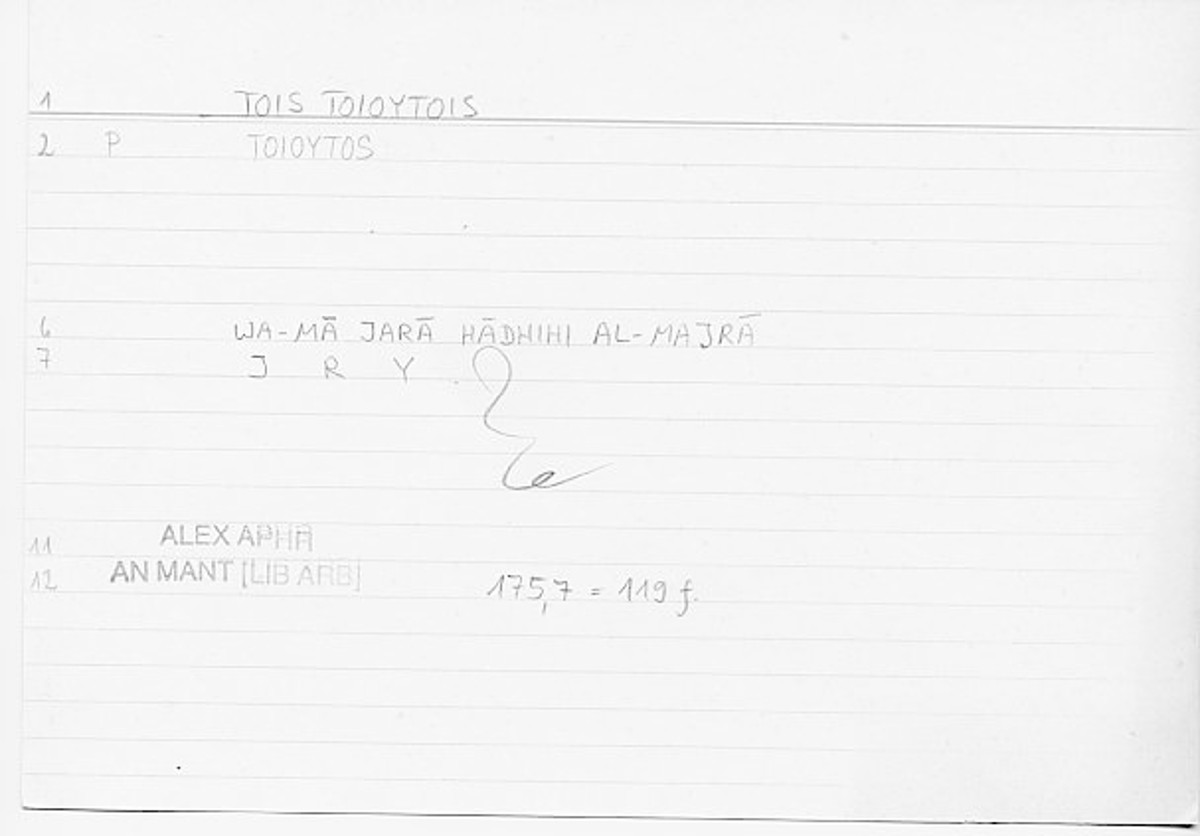 1 TOIS TOIOYTOIS
2 P TOIOYTOS
6 WA-MĀ JARĀ HĀDHIHI AL-MAJRĀ
7 J R Y
11 ALEX APHR
12 AN MANT [LIB ARB] 175,7 = 119 f.